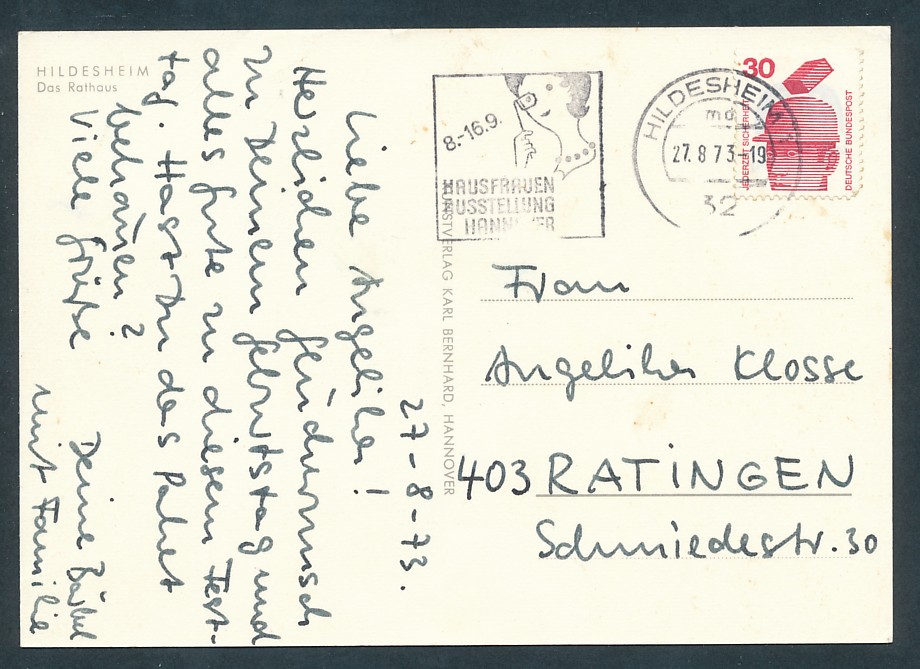 HILDESHEIM
Das Rathaus
27-8-73.
Liebe Angelika!
Herzlichen Glückwunsch
zu Deinem Geburtstag und
alles Gute zu diesem Fest-
tag. Hast Du das Paket
bekommen?
Viele Grüße
Deine Bärbel
mit Familie
KUNSTVERLAG KARL BERNHARD, HANNOVER
8.-16.9.
HAUSFRAUEN
AUSSTELLUNG
HANNOVER
HILDESHEIM
md
27.8.73-19
32
30
JEDERZEIT SICHERHEIT
DEUTSCHE BUNDESPOST
Frau
Angelika Klosse
403 RATINGEN
Schmiedestr. 30